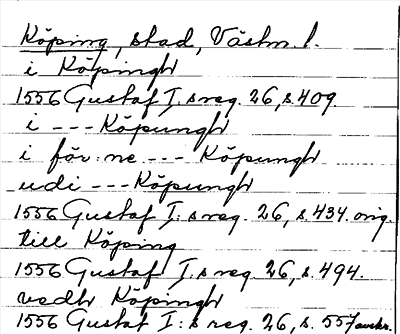 Köping, stad, Västm. l.
i Köpingh
1556 Gustaf I.s reg. 26, s. 409.
i --- Köpungh
i för:ne --- Köpungh
udi --- Köpungh
1556 Gustaf I:s reg. 26, s. 434. orig.
till Köping
1556 Gustaf I.s reg. 26, s. 494.
vedh Köpingh
1556 Gustaf I:s reg. 26, s. 557 avskr.